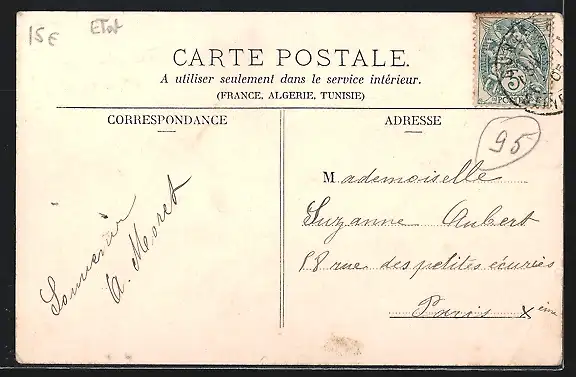 15€ Etat
CARTE POSTALE.
A utiliser seulement dans le service intérieur.
(FRANCE, ALGERIE, TUNISIE)
CORRESPONDANCE
ADRESSE
95
Souvenir
A. Moret
Mademoiselle
Suzanne Aubert
18 rue des petites écuries
Paris Xème
5
POSTES